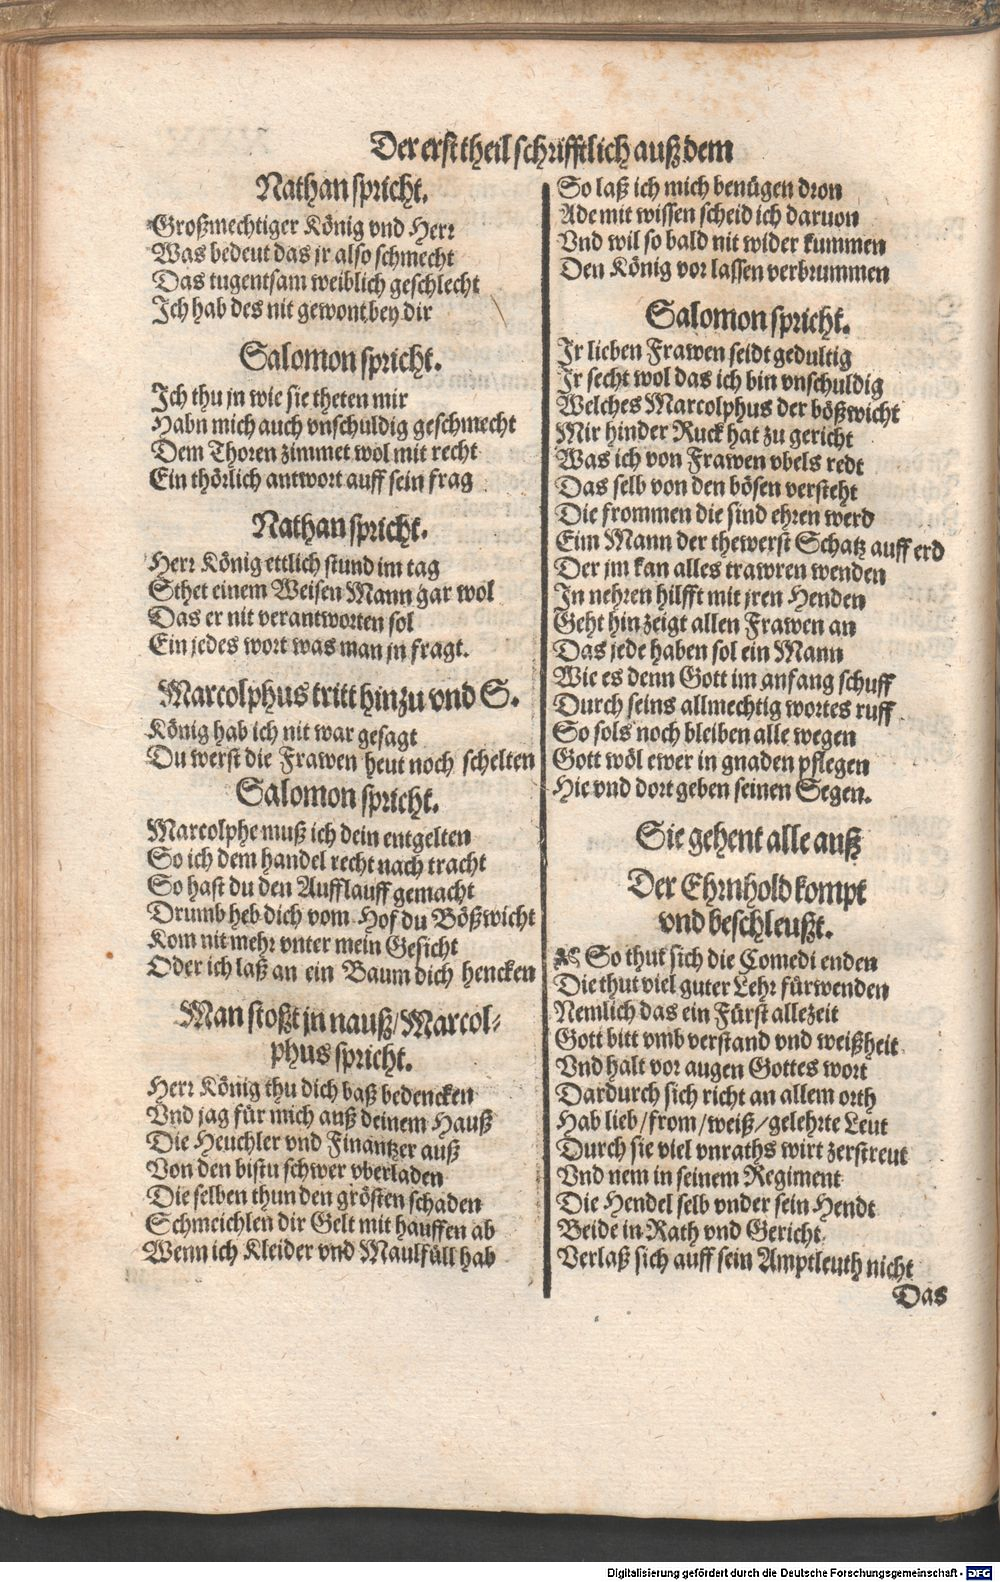 Der erst theil schrifftlich auß dem
Nathan spricht.
Großmechtiger König vnd Herr
Was bedeut das jr also schmecht
Das tugentsam weiblich geschlecht
Ich hab des nit gewont bey dir
Salomon spricht.
Ich thu jn wie sie theten mir
Habn mich auch vnschuldig geschmecht
Dem Thoren zimmet wol mit recht
Ein thörlich antwort auff sein frag
Nathan spricht.
Herr König ettlich stund im tag
Sthet einem Weisen Mann gar wol
Das er nit verantworten sol
Ein jedes wort was man jn fragt.
Marcolphus tritt hinzu vnd S.
König hab ich nit war gesagt
Du werst die Frawen heut noch schelten
Salomon spricht.
Marcolphe muß ich dein entgelten
So ich dem handel recht nach tracht
So hast du den Aufflauff gemacht
Drumb heb dich vom Hof du Bößwicht
Kom nit mehr vnter mein Gesicht
Oder ich laß an ein Baum dich hencken
Man stoßt jn nauß/Marcol-
phus spricht.
Herr König thu dich baß bedencken
Vnd jag für mich auß deinem Hauß
Die Heuchler vnd Finantzer auß
Von den bistu schwer vberladen
Die selben thun den grösten schaden
Schmeichlen dir Gelt mit hauffen ab
Wenn ich Kleider vnd Maulfüll hab
So laß ich mich benügen dron
Ade mit wissen scheid ich daruon
Vnd wil so bald nit wider kummen
Den König vor lassen verbrummen
Salomon spricht.
Ir lieben Frawen seidt gedultig
Ir secht wol das ich bin vnschuldig
Welches Marcolphus der bößwicht
Mir hinder Ruck hat zu gericht
Was ich von Frawen vbels redt
Das selb von den bösen versteht
Die frommen die sind ehren werd
Eim Mann der thewerst Schatz auff erd
Der jm kan alles trawren wenden
In nehren hilfft mit jren Henden
Geht hin zeigt allen Frawen an
Das jede haben sol ein Mann
Wie es denn Gott im anfang schuff
Durch seins allmechtig wortes ruff
So sols noch bleiben alle wegen
Gott wöl ewer in gnaden pflegen
Hie vnd dort geben seinen Segen.
Sie gehent alle auß
Der Ehrnhold kompt
vnd beschleußt.
So thut sich die Comedi enden
Die thut viel guter Lehr fürwenden
Nemlich das ein Fürst allezeit
Gott bitt vmb verstand vnd weißheit
Vnd halt vor augen Gottes wort
Dardurch sich richt an allem orth
Hab lieb/from/weiß/gelehrte Leut
Durch sie viel vnraths wirt zerstreut
Vnd nem in seinem Regiment
Die Hendel selb vnder sein Hendt
Beide in Rath vnd Gericht
Verlaß sich auff sein Amptleuth nicht
Das
Digitalisierung gefördert durch die Deutsche Forschungsgemeinschaft - DFG